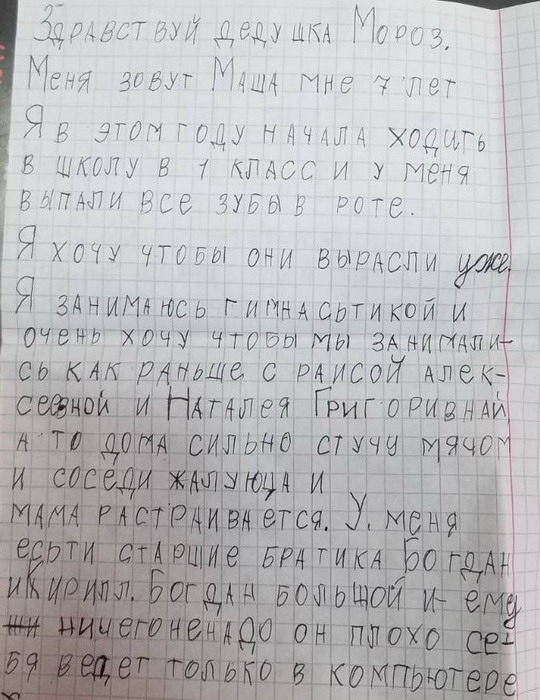 Здравствуй дедушка Мороз.
Меня зовут Маша мне 7 лет
Я в этом году начала ходить
в школу в 1 класс и у меня
выпали все зубы в роте.
Я хочу чтобы они вырасли уже.
Я занимаюсь гимнасьтикой и
очень хочу чтобы мы занимали-
сь как раньше с раисой алек-
сеевной и Наталея Григоривнай,
а то дома сильно стучу мячом
и соседи жалуюца и
мама растраивается. У. меня
есьти старшие братика Богдан
и Кирилл. Богдан большой и- ему
ничего ненадо он плохо се-
бя ведет только в компьютере